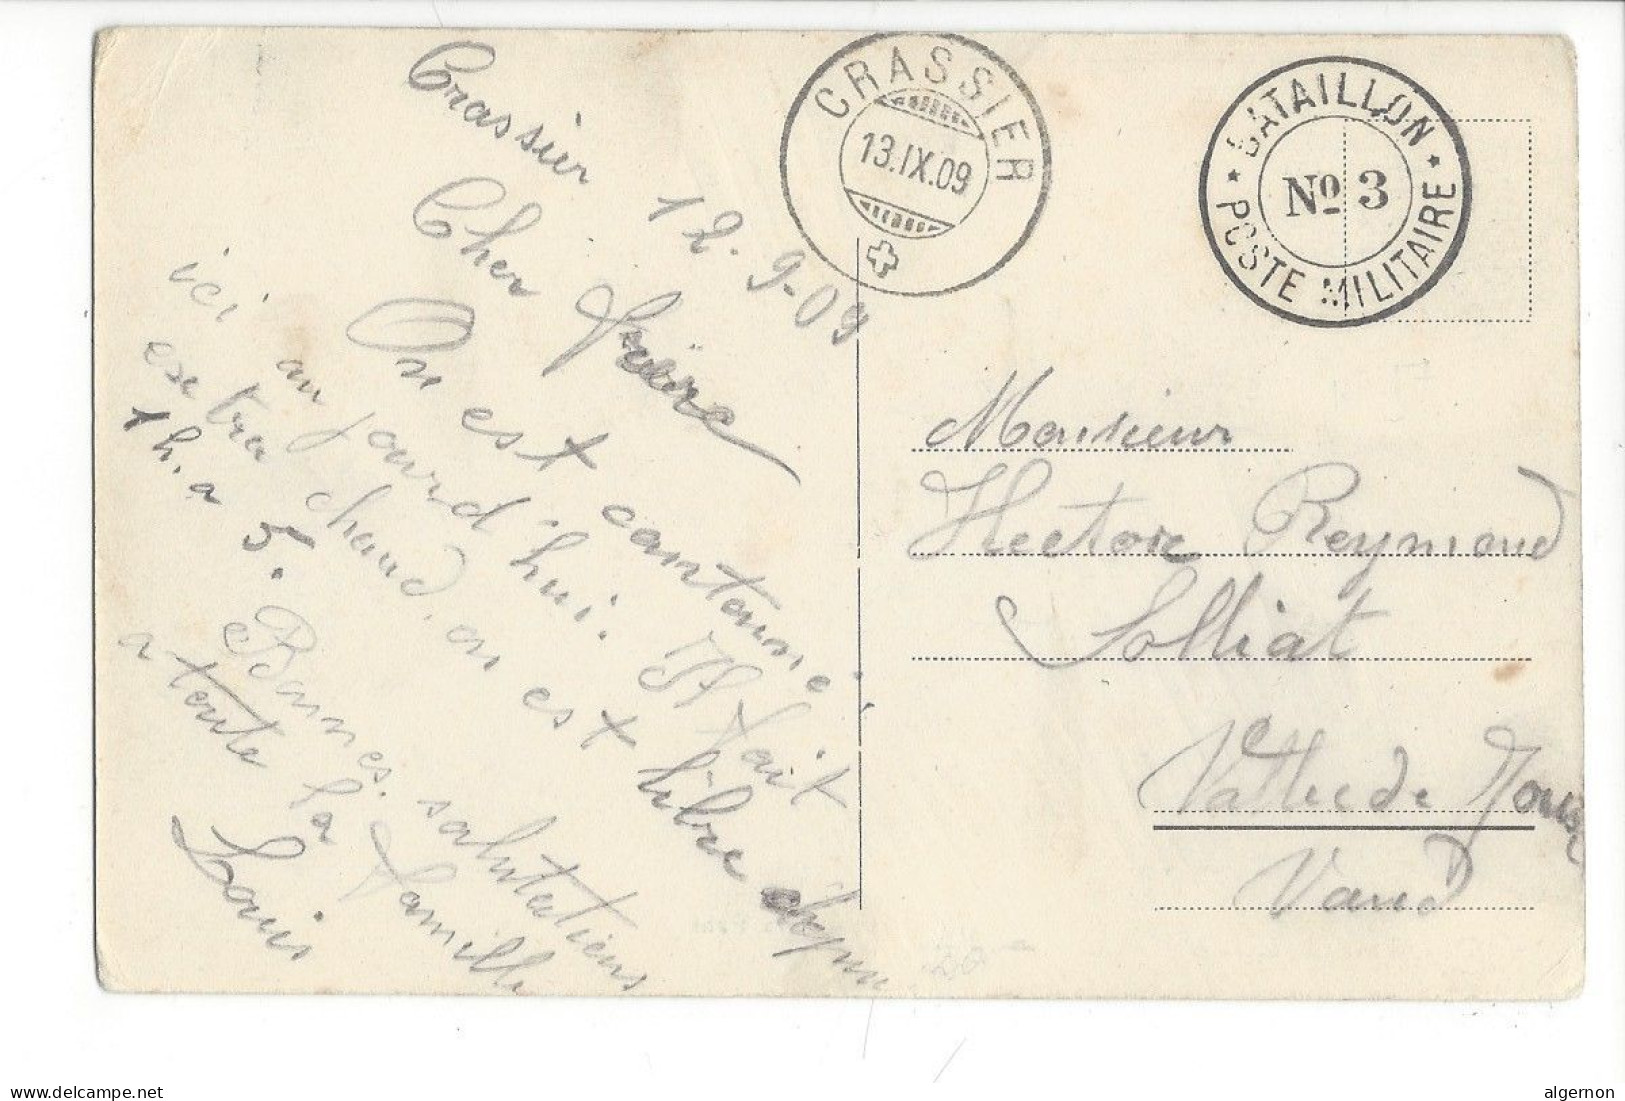 Crassier 12.9-09
Cher Frère
On est cantonné
ici aujourd'hui. Il fait
extra chaud, on est libre depuis
1h. a 5. Bonnes salutations
a toute la famille
Louis
CRASSIER
13.IX.09
BATAILLON
No 3
POSTE MILITAIRE
Monsieur
Hector Reymond
Solliat
Vallée de Joux
Vaud
www.delcampe.net
algernon